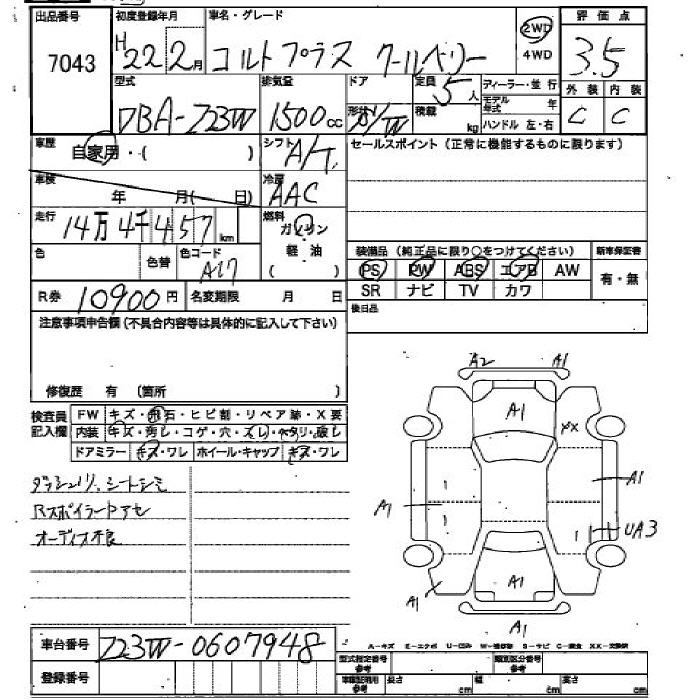 出品番号 初度登録年月 車名・グレード 評価点
7043 H22 2月 コルトプラス クールベリー 2WD 4WD 3.5
型式 排気量 ドア 定員 5人 ディーラー・並行 外装 内装
DBA-Z23W 1500cc 形状 5/W 積載 kg モデル年式 年 C C
ハンドル 左・右
車歴 自家用・( ) シフト A/T セールスポイント(正常に機能するものに限ります)
車検 年 月( 日) 冷房 AAC
走行 14万4千457km 燃料 ガソリン
色 色替 色コード A17 軽油 ( )
装備品(純正品に限り○をつけてください) 新車保証書
PS PW ABS エアB AW 有・無
R券 10900円 名変期限 月 日 SR ナビ TV カワ
注意事項申告欄(不具合内容等は具体的に記入して下さい) 後日品
修復歴 有 (箇所 )
検査員記入欄 FW キズ・飛石・ヒビ割・リペア跡・X要
内装 キズ・汚し・コゲ・穴・スレ・ヘタリ・破し
ドアミラー キズ・ワレ ホイール・キャップ キズ・ワレ
A2 A1
A1
XX
ダッシュノリ、シートシミ
A1
A1
Rスポイラードアセ
UA3
オーディオ不良
A1
A1
A1
車台番号 Z23W-0607948
A-キズ E-エクボ U-凹み W-補修跡 S-サビ C-腐食 XX-交換済
登録番号 型式指定番号 参考 類別区分番号 参考
車庫証明用 参考 長さ cm 幅 cm 高さ cm